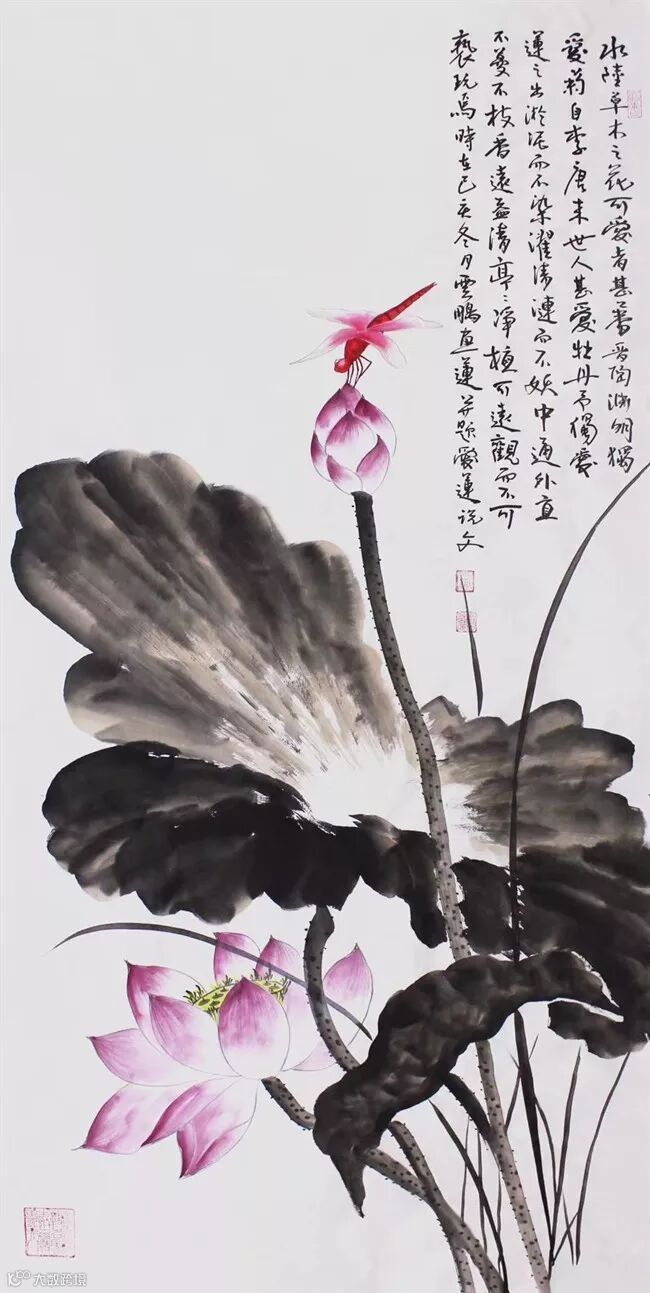 水陸草木之花可愛者甚蕃晉陶渊明獨
愛菊自李唐来世人甚愛牡丹予獨愛
蓮之出淤泥而不染濯清漣而不妖中通外直
不蔓不枝香遠益清亭〻净植可遠觀而不可
褻玩焉時在己亥冬月雲鵬画蓮并题愛蓮说文
大数跨境